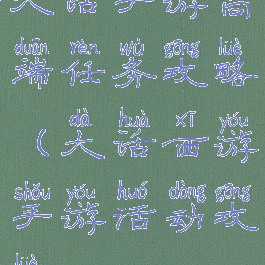 大话手游高
duān rèn wù gōng lüè
端任务攻略
dà huà xī yóu
（大话西游
shǒu yóu huó dòng gōng
手游活动攻
lüè